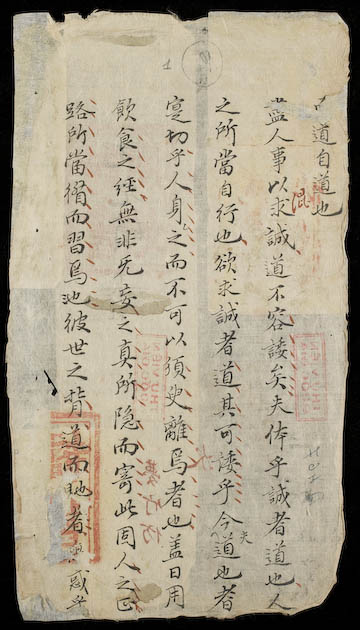 道自道也
盡人事以求誠道不容諉矣夫体乎誠者道也人
之所當自行也欲求誠者道其可諉乎今夫道也者
寔切乎人身之而不可以須臾離焉者也盖日用
飲食之經無非无妄之真所隐而寄此固人之正
路所當循而習焉也彼世之背道而馳者惑乎